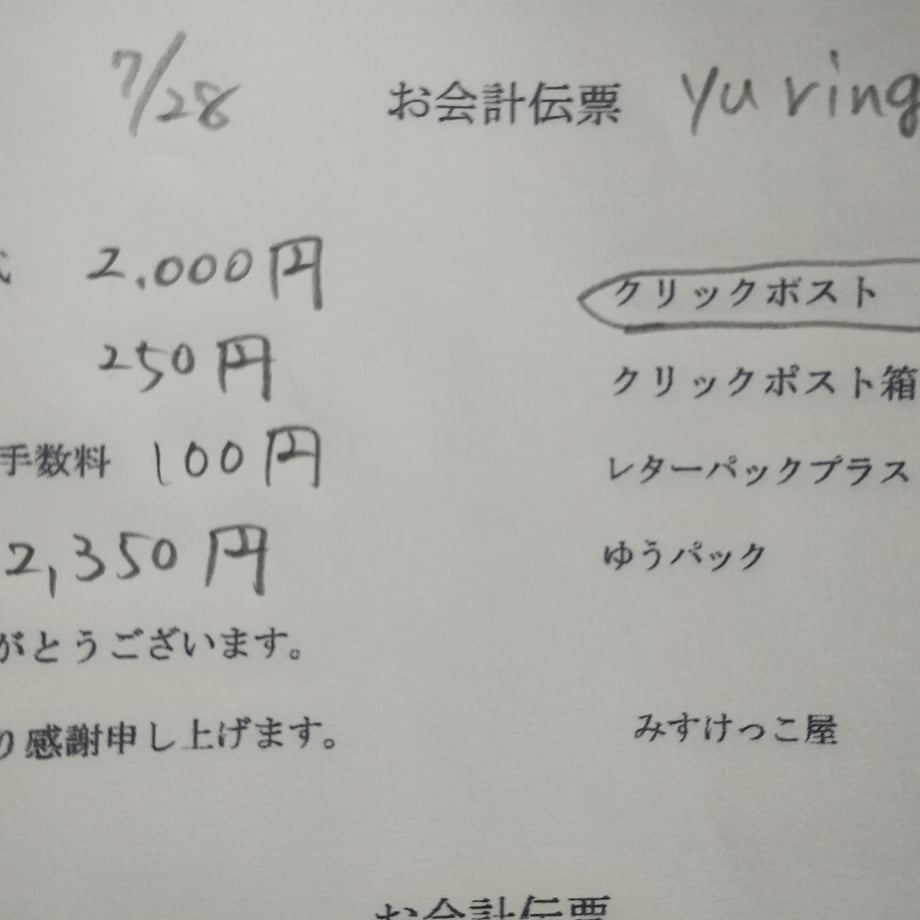 7/28 お会計伝票 yu ring
2,000円 クリックポスト
250円 クリックポスト箱
手数料 100円 レターパックプラス
2,350円 ゆうパック
がとうございます。
り感謝申し上げます。 みすけっこ屋
お会計伝票